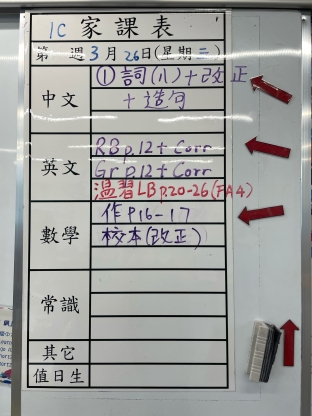 1C 家課表
第 週 3月26日(星期三)
中文
①詞(八)+改正
+造句
英文
RB p.12+Corr
Gr p.12+Corr
溫習LB p.20-26(FA4)
數學
作P16-17
校本(改正)
常識
其它
值日生